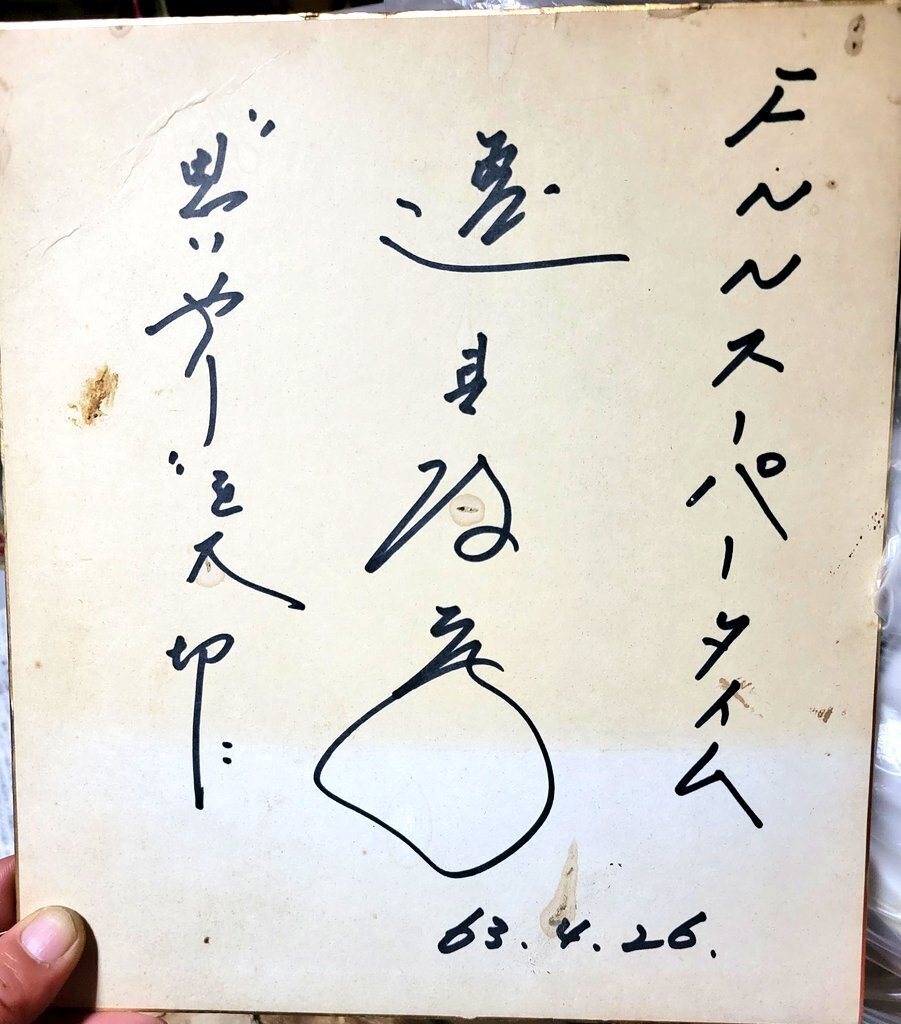 FNNスーパータイム
逸見政孝
思いやりを大切に
63.4.26.